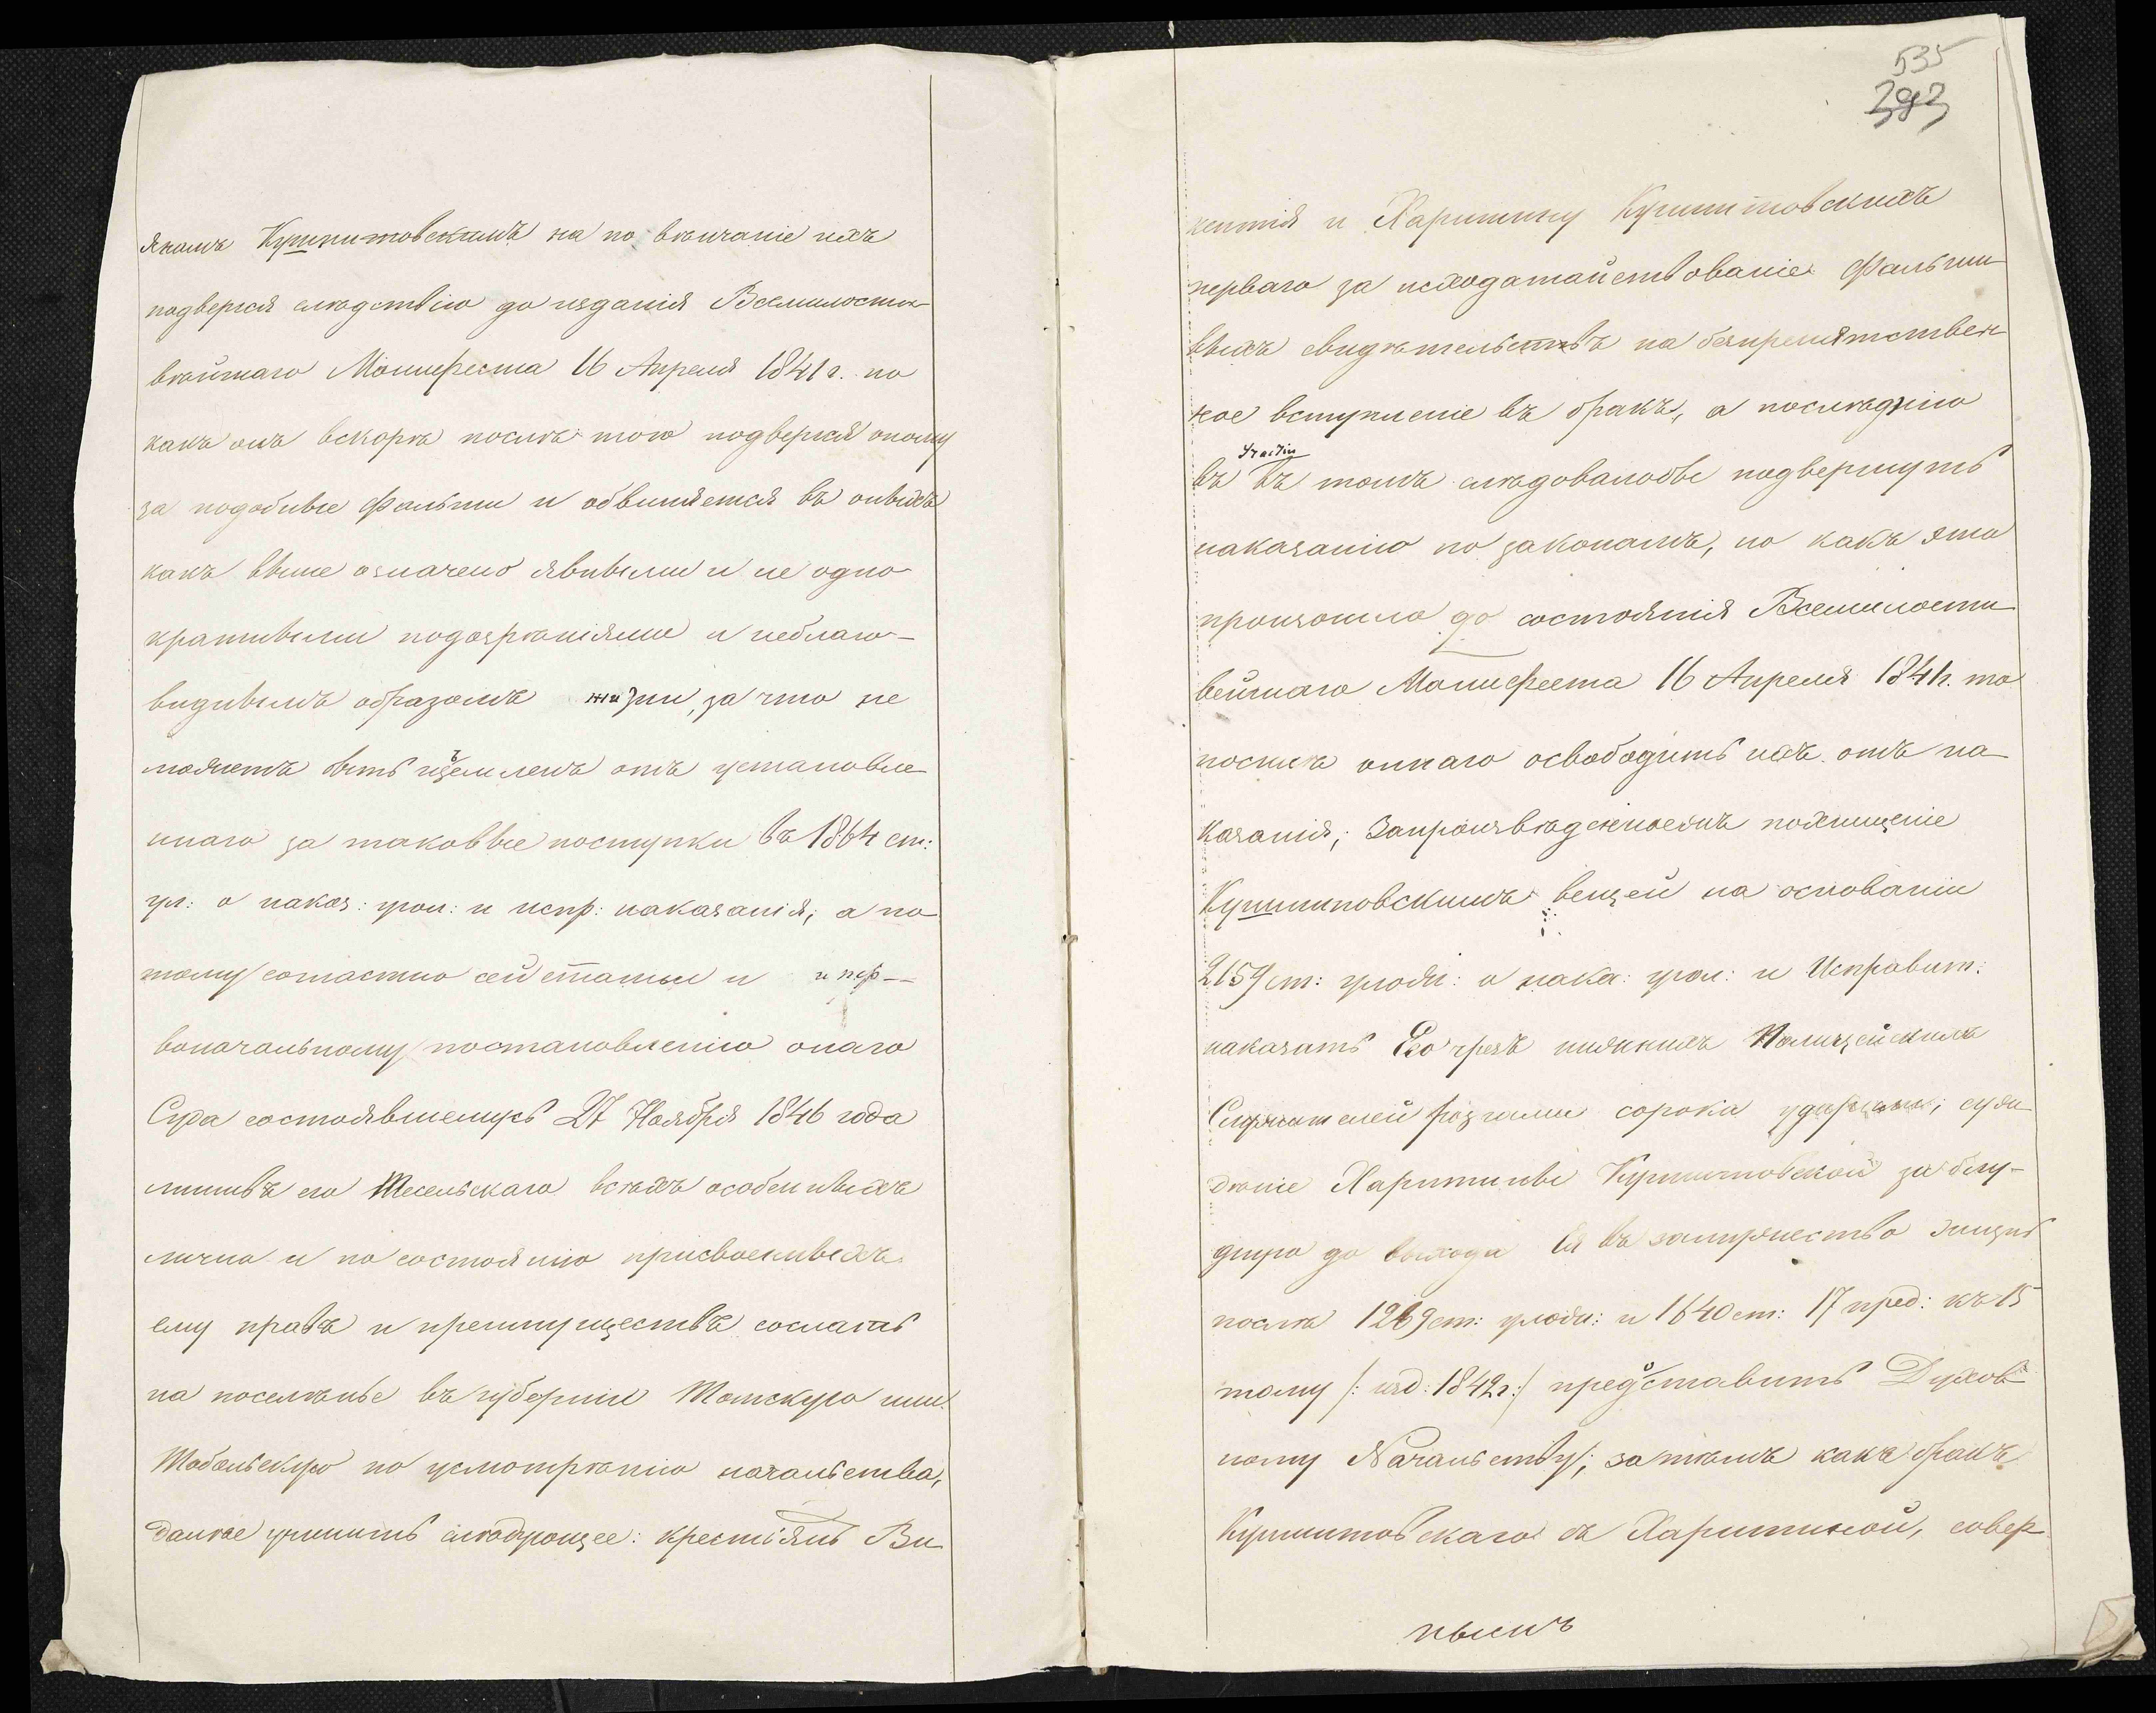 янамъ Кушпитовскимъ на по вѣнчаніе ихъ
подвергся слѣдствію до изданія Всемилости-
вѣйшаго Манифеста 16 Апреля 1841 г. но
какъ онъ вскорѣ послѣ того подвергся оному
за подобные Фальши и обвиняется въ оныхъ
какъ выше означено явными и не одно-
кратными подозрѣніями и неблаго-
виднымъ образомъ жизни, за что не
можетъ быть изъемленъ отъ установле-
ннаго за таковые поступки въ 1864 ст:
ул: о наказ: угол: и испр: наказанія; а по-
тому согластно сей статьи и и пер-
воначальному постановленію онаго
Суда состоявшемусь 27 Ноября 1846 года
лишивъ его Шесельскаго всѣхъ особенныхъ
лично и по состоянію присвоенныхъ
ему правъ и преимуществъ сослать
на поселѣнье въ губерніи Томскую или
Тобольскую по усмотрѣнію начальства,
далѣе учинить слѣдующее: крестьянъ Ви-
535
393
кентія и Харитину Кушпитовскихъ
перваго за исходатайствованіе Фальши-
выхъ свидѣтельствъ на безпрепятствен-
ное вступленіе въ бракъ, а послѣднюю
участіи
въ въ томъ слѣдовалобы подвергнуть
наказанію по законамъ, но какъ это
произошло до состоянія Всемилости-
вейшаго Манифеста 16 Апреля 1841г. то
посилѣ оннаго освободить ихъ отъ на-
казанія; Запроизвѣденноеимъ похищеніе
Кушпитовскимъ вещей на основаніи
2159 ст: улож: о нака: угол: и Исправит:
наказать Его чрезъ нижнихъ Полицейскихъ
Служителей розгами сорока ударами; сужд-
дѣніе Харитины Кушпитовской за блу-
дную до выхода Ея въ замужество жизнь
послѣ 1269 ст: улож: и 1640 ст: 17 прод: къ 15
тому /: изд: 1842 г:/ предоставить Духов-
ному Начальству; затѣмъ какъ бракъ
Кушпитовскаго съ Харитиной, совер-
ннымъ